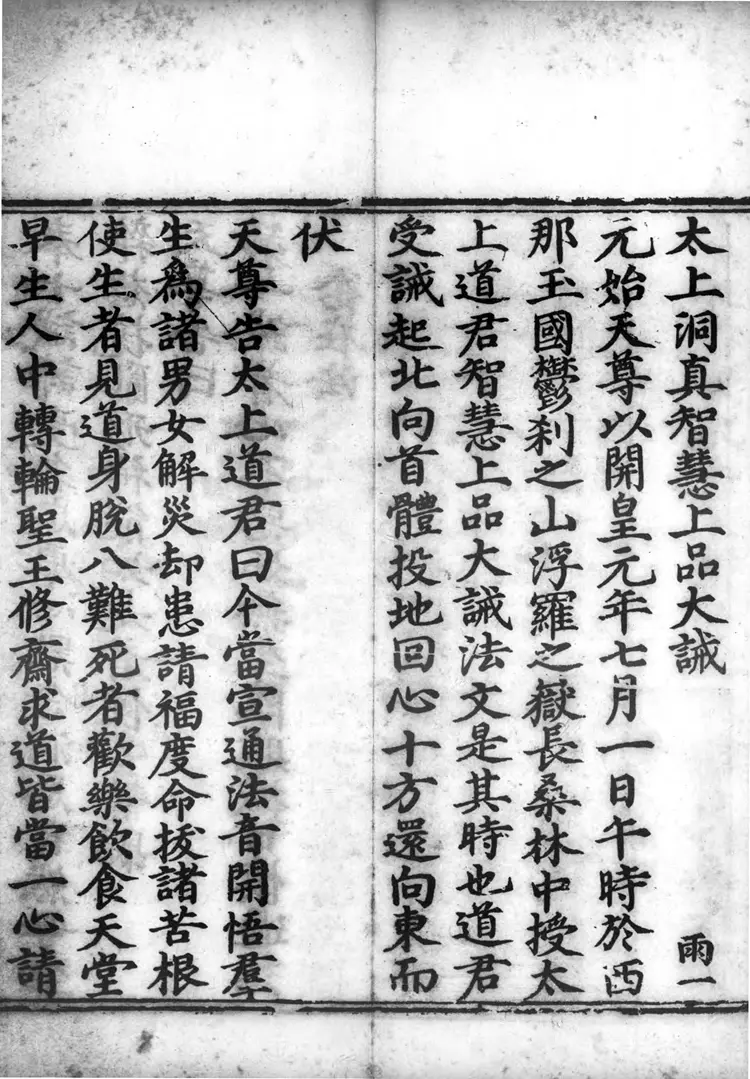 太上洞真智慧上品大誡
雨一
元始天尊以開皇元年七月一日午時於西
那玉國鬱刹之山浮羅之嶽長桑林中授太
上道君智慧上品大誡法文是其時也道君
受誡起北向首體投地回心十方還向東而
伏
天尊告太上道君曰今當宣通法音開悟羣
生爲諸男女解災却患請福度命拔諸苦根
使生者見道身脫八難死者歡樂飲食天堂
早生人中轉輪聖王修齋求道皆當一心請